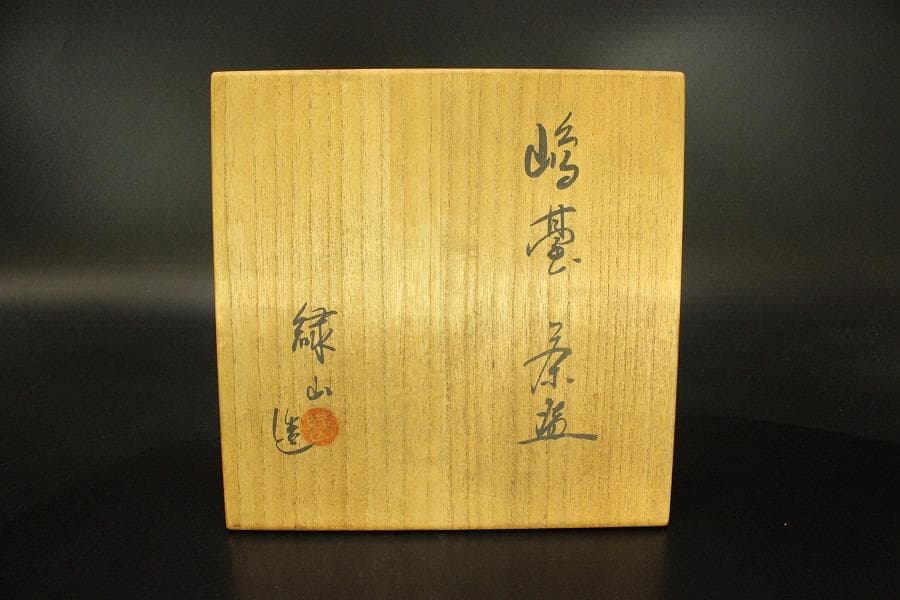 嶋臺 茶盌
緑山造